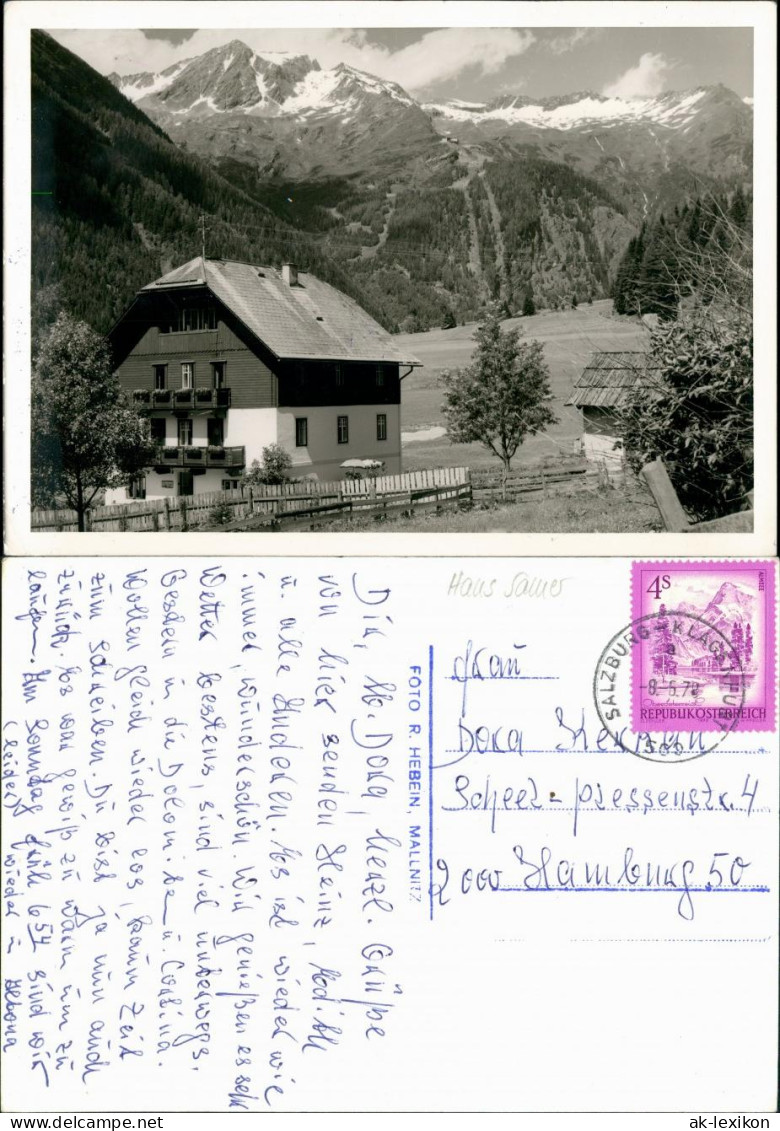 Hans Samer
4s
ALMSEE
REPUBLIK ÖSTERREICH
SALZBURG - KLAGENFURT
-8.-6.78
FOTO R. HEBEIN, MALLNITZ
Frau
Dora
Scheel-Plessenstr. 4
2000 Hamburg 50
Dir, lb. Dora, herzl. Grüße
von hier senden Heinz, Edith
u. alle Anderen. Es ist wieder wie
immer, wunderschön. Wir genießen es sehr
Wetter bestens, sind viel unterwegs.
Gestern in die Dolomiten u. Cortina.
Wollen gleich wieder los, kaum Zeit
zum Schreiben. Du bist ja nun auch
zurück. Es war gewiß zu warm um zu
laufen. Am Sonntag früh 6 sind wir
(leider) wieder in
ak-lexikon